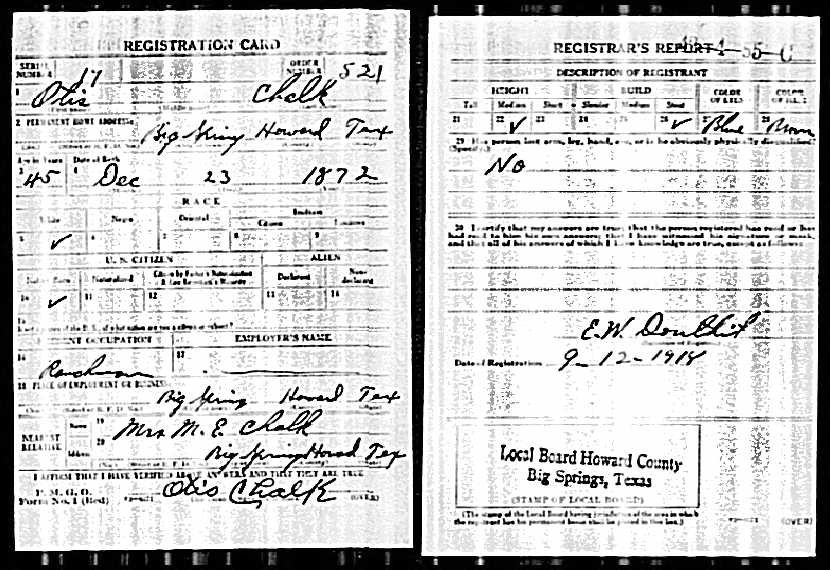 REGISTRATION CARD
SERIAL NUMBER
ORDER NUMBER 521
1 Otis Chalk
2 PERMANENT HOME ADDRESS:
Big Spring Howard Tex
Age in Years Date of Birth
3 45 4 Dec 23 1872
RACE
White Negro Oriental Indian
Citizen
5 ✓ 6 7 8 9
U. S. CITIZEN ALIEN
Native Born Naturalized Declarant Non-declarant
10 ✓ 11 12 13 14
15
PRESENT OCCUPATION EMPLOYER'S NAME
16 Ranchman 17
18 PLACE OF EMPLOYMENT OR BUSINESS:
Big Spring Howard Tex
NEAREST RELATIVE
Name 19 Mrs M. E. Chalk
Address 20 Big Spring Howard Tex
I AFFIRM THAT I HAVE VERIFIED ABOVE ANSWERS AND THAT THEY ARE TRUE
P. M. G. O.
Form No. 1 (Red) Otis Chalk (OVER)
REGISTRAR'S REPORT
DESCRIPTION OF REGISTRANT
HEIGHT BUILD COLOR OF EYES COLOR OF HAIR
Tall Medium Short Slender Medium Stout
21 22 ✓ 23 24 25 26 ✓ 27 Blue 28 Brown
29 Has person lost arm, leg, hand, eye, or is he obviously physically disqualified?
(Specify.)
No
30 I certify that my answers are true; that the person registered has read or has
had read to him his own answers; that I have witnessed his signature or mark,
and that all of his answers of which I have knowledge are true, except as follows:
E.W. Douthit
Date of Registration 9-12-1918
Local Board Howard County
Big Springs, Texas
(STAMP OF LOCAL BOARD)
(The stamp of the Local Board having jurisdiction of the area in which
the registrant has his permanent home shall be placed in this box.)
(OVER)